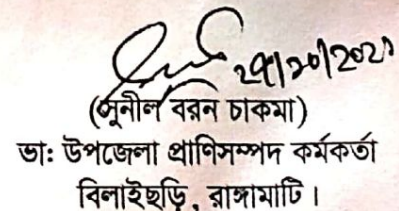 (সুনীল বরন চাকমা)
ভাঃ উপজেলা প্রাণিসম্পদ কর্মকর্তা
বিলাইছড়ি, রাঙ্গামাটি।